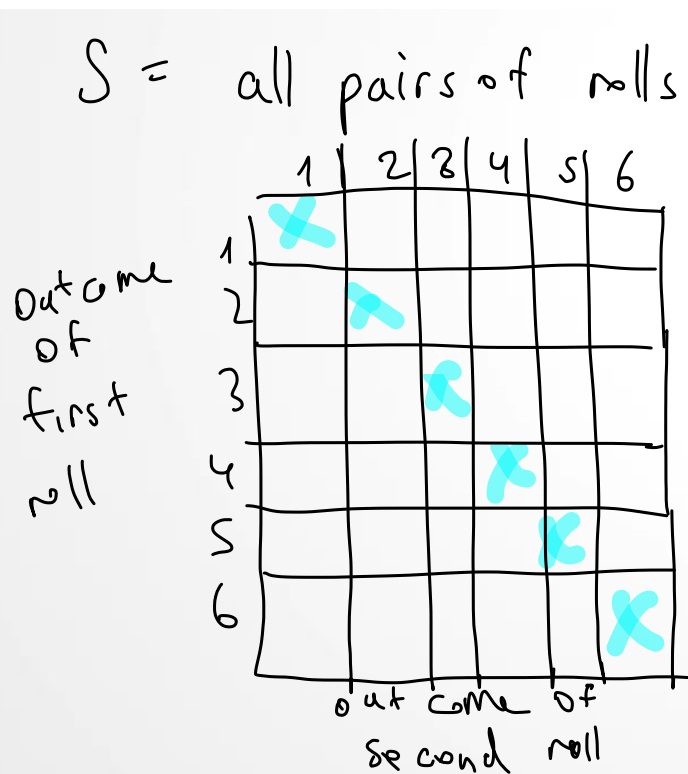 S = all pairs of rolls
1 2 3 4 5 6
1
2
3
4
5
6
outcome
of
first
roll
outcome of
second roll